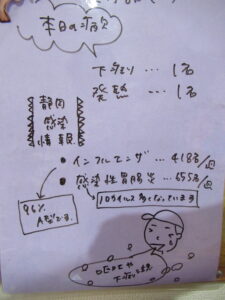 本日の病欠
下痢 … 1名
発熱 … 1名
静岡
感染
情報
● インフルエンザ … 418名/週
● 感染性胃腸炎 … 655名/週
96%
A型です。
ロタウイルス多くなっています
下痢